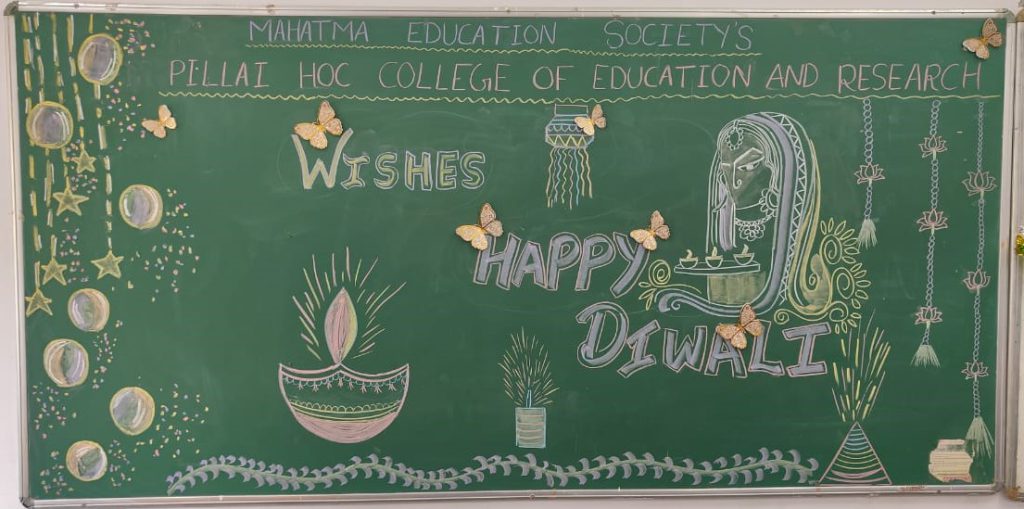 MAHATMA EDUCATION SOCIETY'S
PILLAI HOC COLLEGE OF EDUCATION AND RESEARCH
WISHES
HAPPY
DIWALI